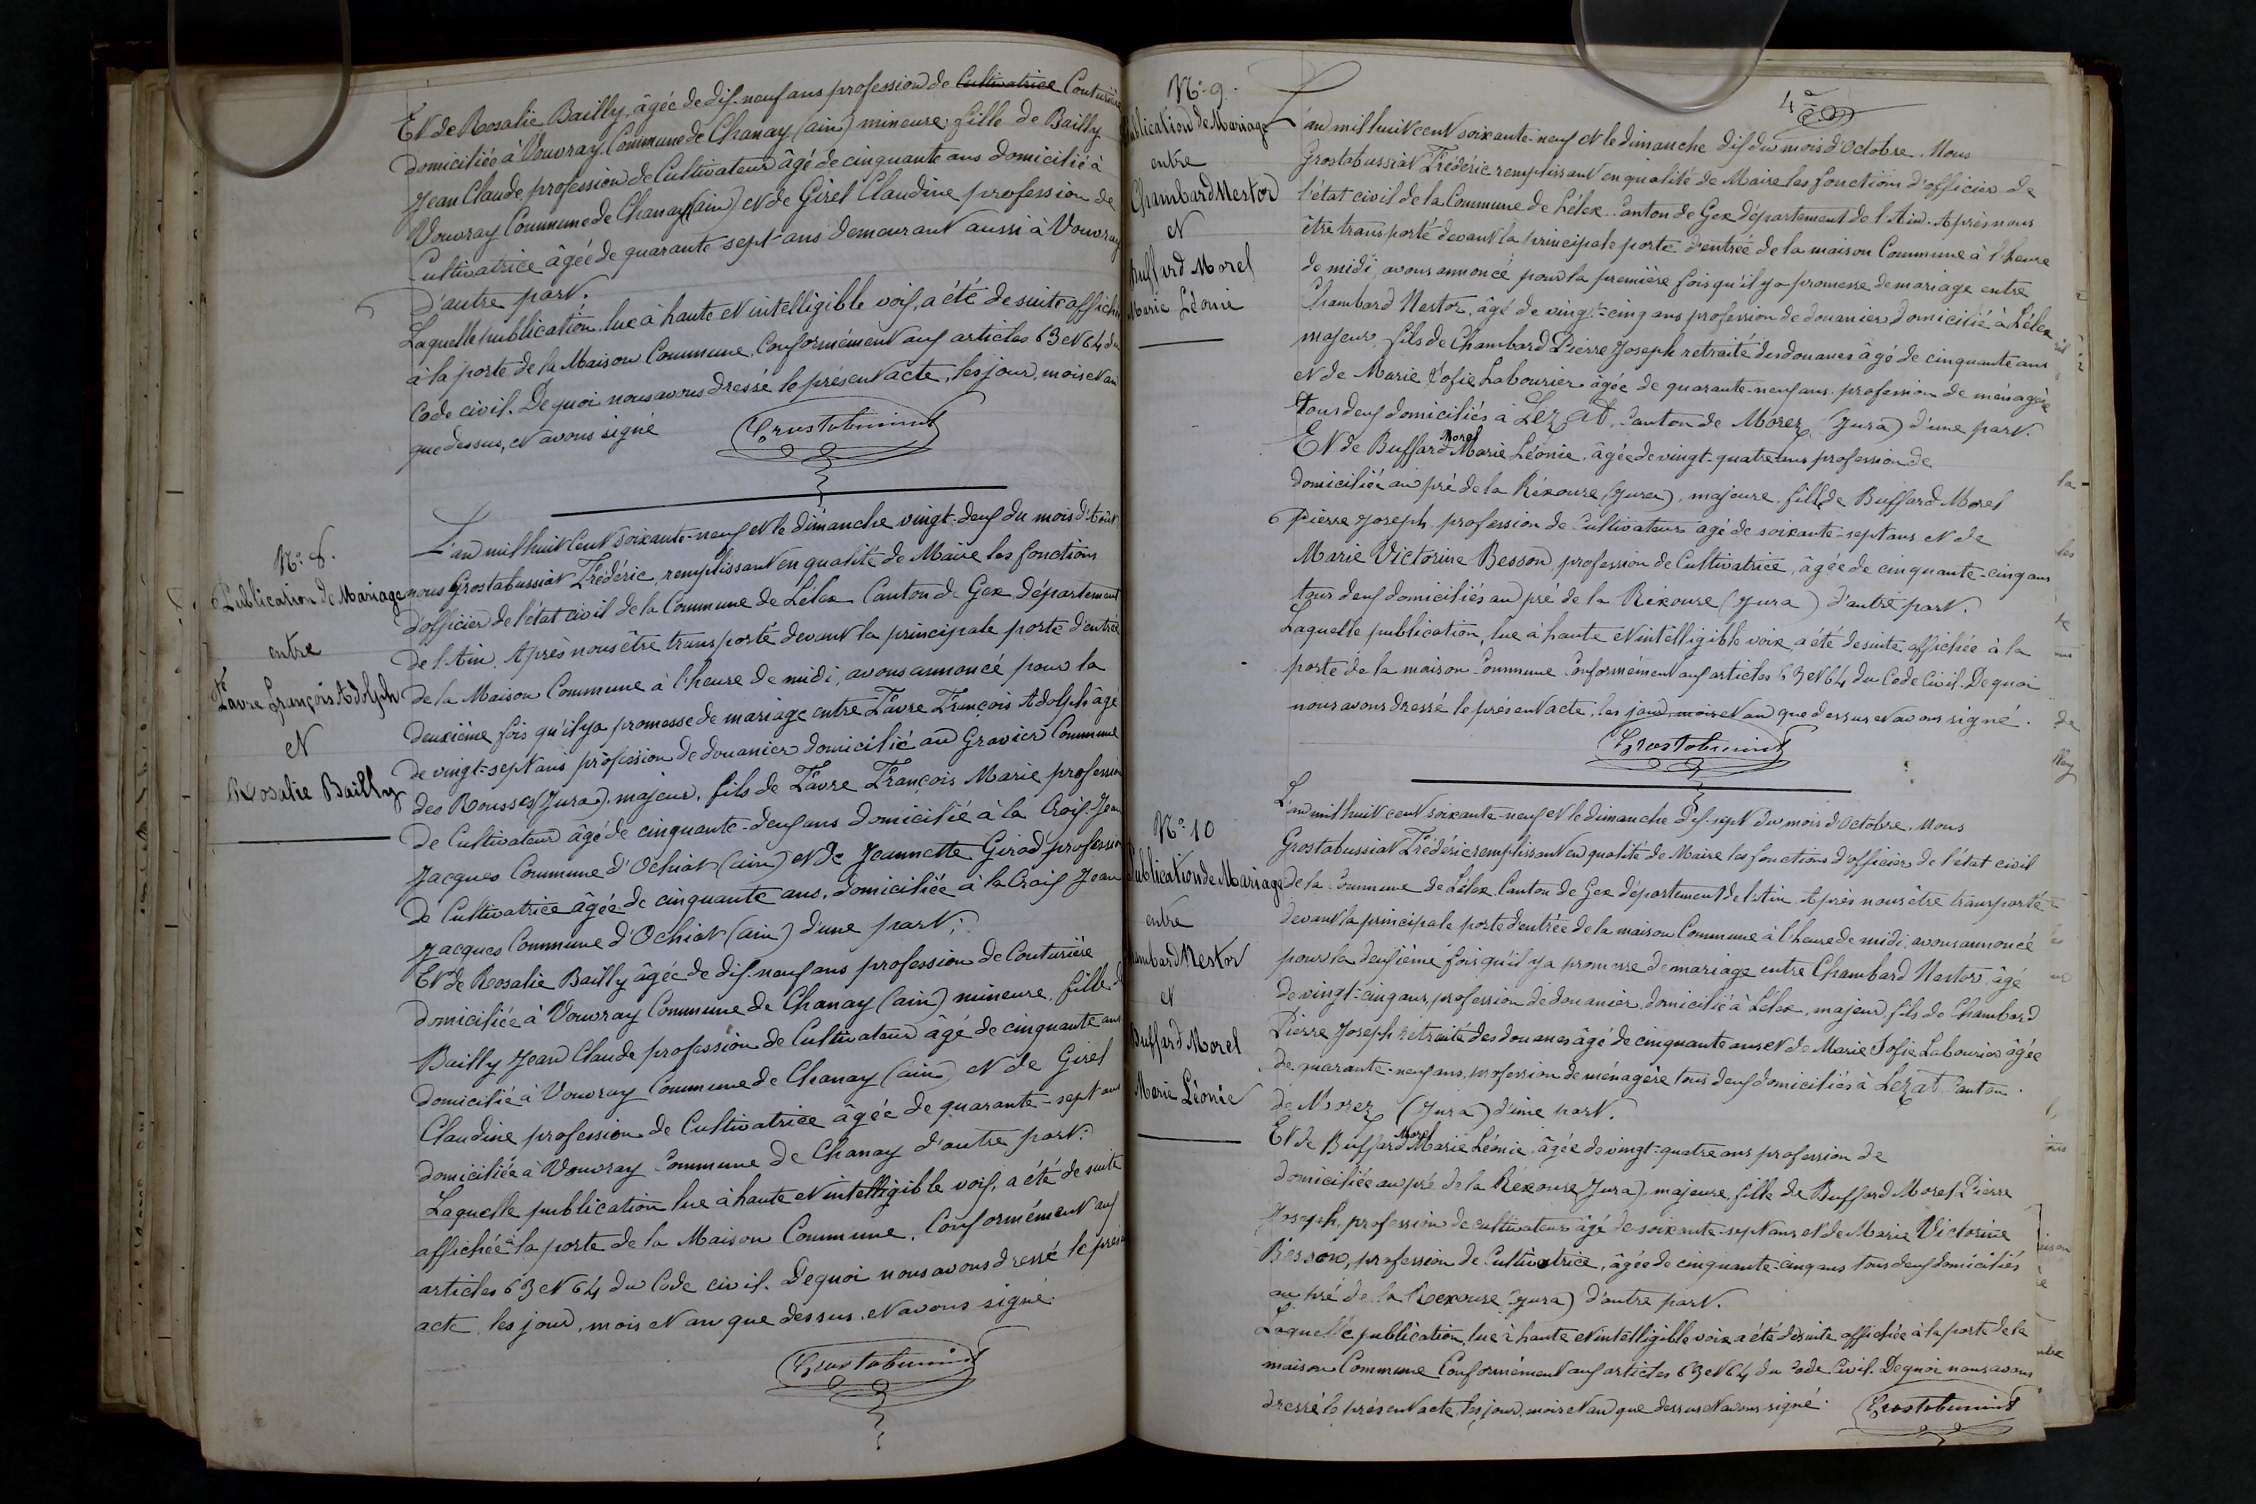 Et de Rosalie Bailly, âgée de dix-neuf ans profession de Cultivatrice Couturière
domiciliée à Vouvray Commune de Chanay (ain) mineure fille de Bailly
Jean Claude, profession de Cultivateur âgé de cinquante ans domicilié à
Vouvray Commune de Chanay (ain) et de Girel Claudine profession de
Cultivatrice âgée de quarante sept ans demeurant aussi à Vouvray
D'autre part.
Laquelle publication, lue à haute et intelligible voix, a été de suite affichée
à la porte de la Maison Commune, Conformément aux articles 63 et 64 du
Code civil. De quoi nous avons dressé le présent acte, les jour, mois et an
que dessus, et avons signé
N° 8.
Publication de Mariage
entre
Favre François Adolph
et
Rosalie Bailly
L'an mil huit cent soixante-neuf et le dimanche vingt-deux du mois d'Août
nous Grostabussiat Frédéric, remplissant en qualité de Maire les fonctions
d'officier de l'état civil de la Commune de Lélex Canton de Gex département
de l'Ain. Après nous être transporté devant la principale porte d'entrée
de la Maison Commune à l'heure de midi, avons annoncé pour la
deuxième fois qu'il y a promesse de mariage entre Favre François Adolph âgé
de vingt-sept ans profession de douanier domicilié au Gravier Commune
des Rousses (Jura). majeur, fils de Favre François Marie profession
de Cultivateur âgé de cinquante-deux ans domicilié à la Croix-Jean
Jacques Commune d'Ochiat (ain) et de Jeannette Girod profession
de Cultivatrice âgée de cinquante ans, domiciliée à la Croix Jean
Jacques Commune d'Ochiat (ain) d'une part;
Et de Rosalie Bailly âgée de dix-neuf ans profession de Couturière
domiciliée à Vouvray Commune de Chanay (ain) mineure, fille de
Bailly Jean Claude profession de Cultivateur âgé de cinquante ans
domicilié à Vouvray Commune de Chanay (ain) et de Girel
Claudine profession de Cultivatrice âgée de quarante-sept ans
domiciliée à Vouvray Commune de Chanay d'autre part.
Laquelle publication lue à haute et intelligible voix, a été de suite
affichée à la porte de la Maison Commune, Conformément aux
articles 63 et 64 du Code civil. De quoi nous avons dressé le présent
acte, les jour, mois et an que dessus, et avons signé.
N° 9.
Publication de Mariage
entre
Chambard Nestor
et
Buffard Morel
Marie Léonie
L'an mil huit cent soixante-neuf et le dimanche dix du mois d'Octobre. Nous
Grostabussiat Frédéric remplissant en qualité de Maire les fonctions d'officier de
l'état civil de la Commune de Lélex Canton de Gex département de l'Ain. Après nous
être transporté devant la principale porte d'entrée de la maison Commune à l'heure
de midi, avons annoncé pour la première fois qu'il y a promesse de mariage entre
Chambard Nestor, âgé de vingt-cinq ans profession de douanier domicilié à Lélex
majeur, fils de Chambard Pierre Joseph retraité des douanes âgé de cinquante ans
et de Marie Sofie Labourier âgée de quarante-neuf ans, profession de ménagère
tous deux domiciliés à Lezat, Canton de Morez (Jura) d'une part.
Et de Buffard Morel Marie Léonie, âgée de vingt-quatre ans profession de
domiciliée au pré de la Rixouse (Jura), majeure, fille de Buffard Morel
Pierre Joseph, profession de Cultivateur âgé de soixante-sept ans et de
Marie Victorine Besson, profession de Cultivatrice, âgée de cinquante-cinq ans
tous deux domiciliés au pré de la Rixouse (Jura) d'autre part.
Laquelle publication, lue à haute et intelligible voix a été de suite affichée à la
porte de la maison Commune Conformément aux articles 63 et 64 du Code Civil. De quoi
nous avons dressé le présent acte, les jour, mois et an que dessus et avons signé.
N° 10
Publication de Mariage
entre
Chambard Nestor
et
Buffard Morel
Marie Léonie
L'an mil huit cent soixante-neuf et le dimanche dix-sept du mois d'Octobre. Nous
Grostabussiat Frédéric remplissant en qualité de Maire les fonctions d'officier de l'état civil
de la Commune de Lélex Canton de Gex département de l'Ain. Après nous être transporté
devant la principale porte d'entrée de la maison Commune à l'heure de midi, avons annoncé
pour la deuxième fois qu'il y a promesse de mariage entre Chambard Nestor, âgé
de vingt-cinq ans, profession de douanier, domicilié à Lélex, majeur, fils de Chambard
Pierre Joseph retraité des douanes âgé de cinquante ans et de Marie Sofie Labourier âgée
de quarante-neuf ans, profession de ménagère tous deux domiciliés à Lezat Canton
de Morez (Jura) d'une part.
Et de Buffard Morel Marie Léonie, âgée de vingt-quatre ans profession de
domiciliée au pré de la Rixouse (Jura), majeure, fille de Buffard Morel Pierre
Joseph, profession de cultivateur âgé de soixante-sept ans et de Marie Victorine
Besson, profession de Cultivatrice, âgée de cinquante-cinq ans tous deux domiciliés
au pré de la Rixouse (Jura) d'autre part.
Laquelle publication, lue à haute et intelligible voix a été de suite affichée à la porte de la
maison Commune Conformément aux articles 63 et 64 du Code Civil. De quoi nous avons
dressé le présent acte, les jour, mois et an que dessus et avons signé.